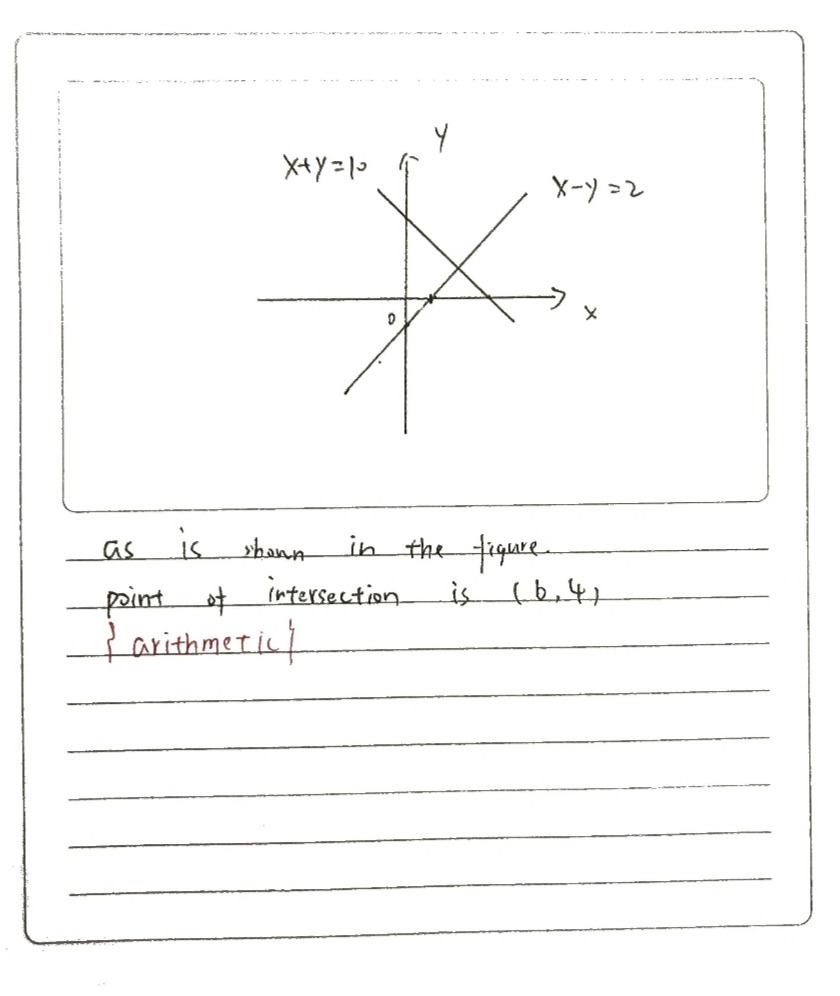 y
x+y=10
x-y=2
0
x
as is shown in the figure.
point of intersection is (6,4)
{arithmetic}